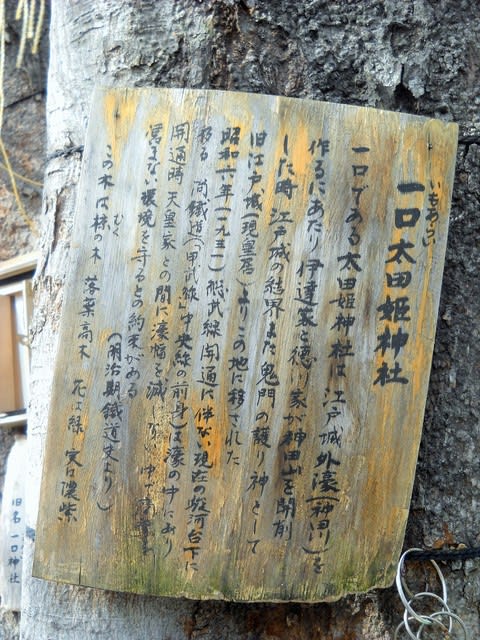 いもあらい
一口太田姫神社
一口である太田姫神社は 江戸城外濠(神田川)を
作るにあたり 伊達家と徳川家が神田山を開削
した時 江戸城の結界また鬼門の護り神として
旧江戸城(現皇居)よりこの地に移された
昭和六年(一九三一)総武線開通に伴ない現在の駿河台下に
移る 尚鐵道(「甲武線」中央線の前身)は濠の中にあり
開通時 天皇家との間に濠幅を減じない
営まない環境を守るとの約束がある
(明治期鐵道史より)
むく
この木は椋の木 落葉高木 花は緑 実は濃紫
旧名 一口神社